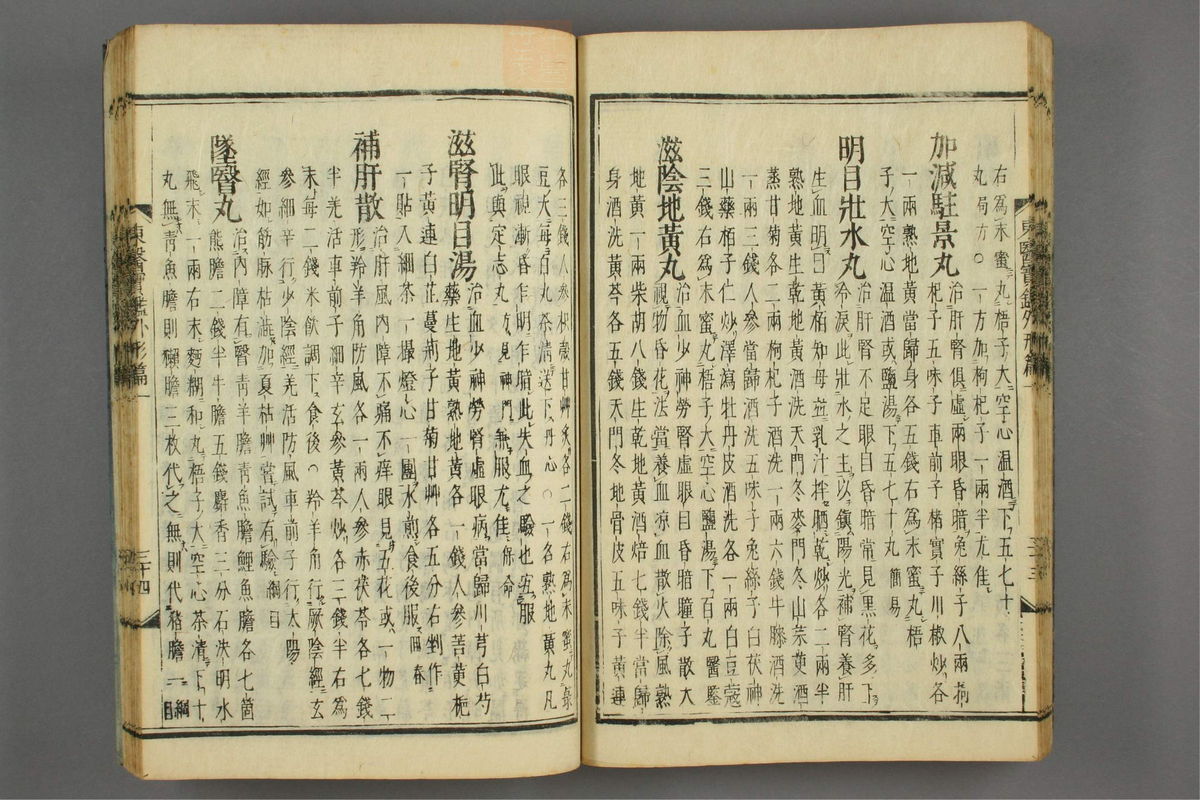 右爲末蜜丸梧子大空心温酒下五七十
丸局方○一方加枸杞子一兩半尤佳
加減駐景丸 治肝腎俱虛兩眼昏暗兔絲子八兩枸
杞子五味子車前子楮實子川椒炒各
一兩熟地黃當歸身各五錢右爲末蜜丸梧
子大空心温酒或鹽湯下五七十丸簡易
明目壯水丸 治肝腎不足眼目昏暗常見黑花多下
冷淚此壯水之主以鎭陽光補腎養肝
生血明目黃栢知母並乳汁拌晒乾炒各二兩半
熟地黃生乾地黃酒洗天門冬麥門冬山茱萸酒
蒸甘菊各二兩枸杞子酒洗一兩六錢牛膝酒洗
一兩三錢人參當歸酒洗五味子兔絲子白茯神
山藥栢子仁炒澤瀉牡丹皮酒洗各一兩白豆蔲
三錢右爲末蜜丸梧子大空心鹽湯下百丸醫鑒
滋陰地黃丸 治血少神勞腎虛眼目昏暗瞳子散大
視物昏花法當養血凉血散火除風熟
地黃一兩柴胡八錢生乾地黃酒焙七錢半當歸
身酒洗黃芩各五錢天門冬地骨皮五味子黃連
東醫寶鑑外形篇一
三十三
各三錢人參枳殼甘艸炙各二錢右爲末蜜丸菉
豆大每百丸茶淸送下丹心○一名熟地黃丸凡
眼視漸昏乍明乍暗此失血之驗也宜服
此與定志丸方見神門無服尤佳保命
滋腎明目湯 治血少神勞腎虛眼病當歸川芎白芍
藥生地黃熟地黃各一錢人參苦莄梔
子黃連白芷蔓荊子甘菊甘艸各五分右剉作
一貼入細茶一撮燈心一團水煎食後服回春
補肝散 治肝風內障不痛不痒眼見五花或一物二
形羚羊角防風各一兩人參赤茯苓各七錢
半羌活車前子細辛玄參黃芩炒各三錢半右爲
末每二錢米飮調下食後○羚羊角行厥陰經玄
參細辛行少陰經羌活防風車前子行太陽
經如筋脉枯澁加夏枯艸嘗試有驗綱目
墜瞖丸 治內障有瞖靑羊膽靑魚膽鯉魚膽各七箇
熊膽二錢半牛膽五錢麝香三分石決明水
飛末一兩右末麵糊和丸梧子大空心茶淸下十
丸無靑魚膽則獺膽三枚代之無則代猪膽一綱目
東醫寶鑑外形篇一
三十四